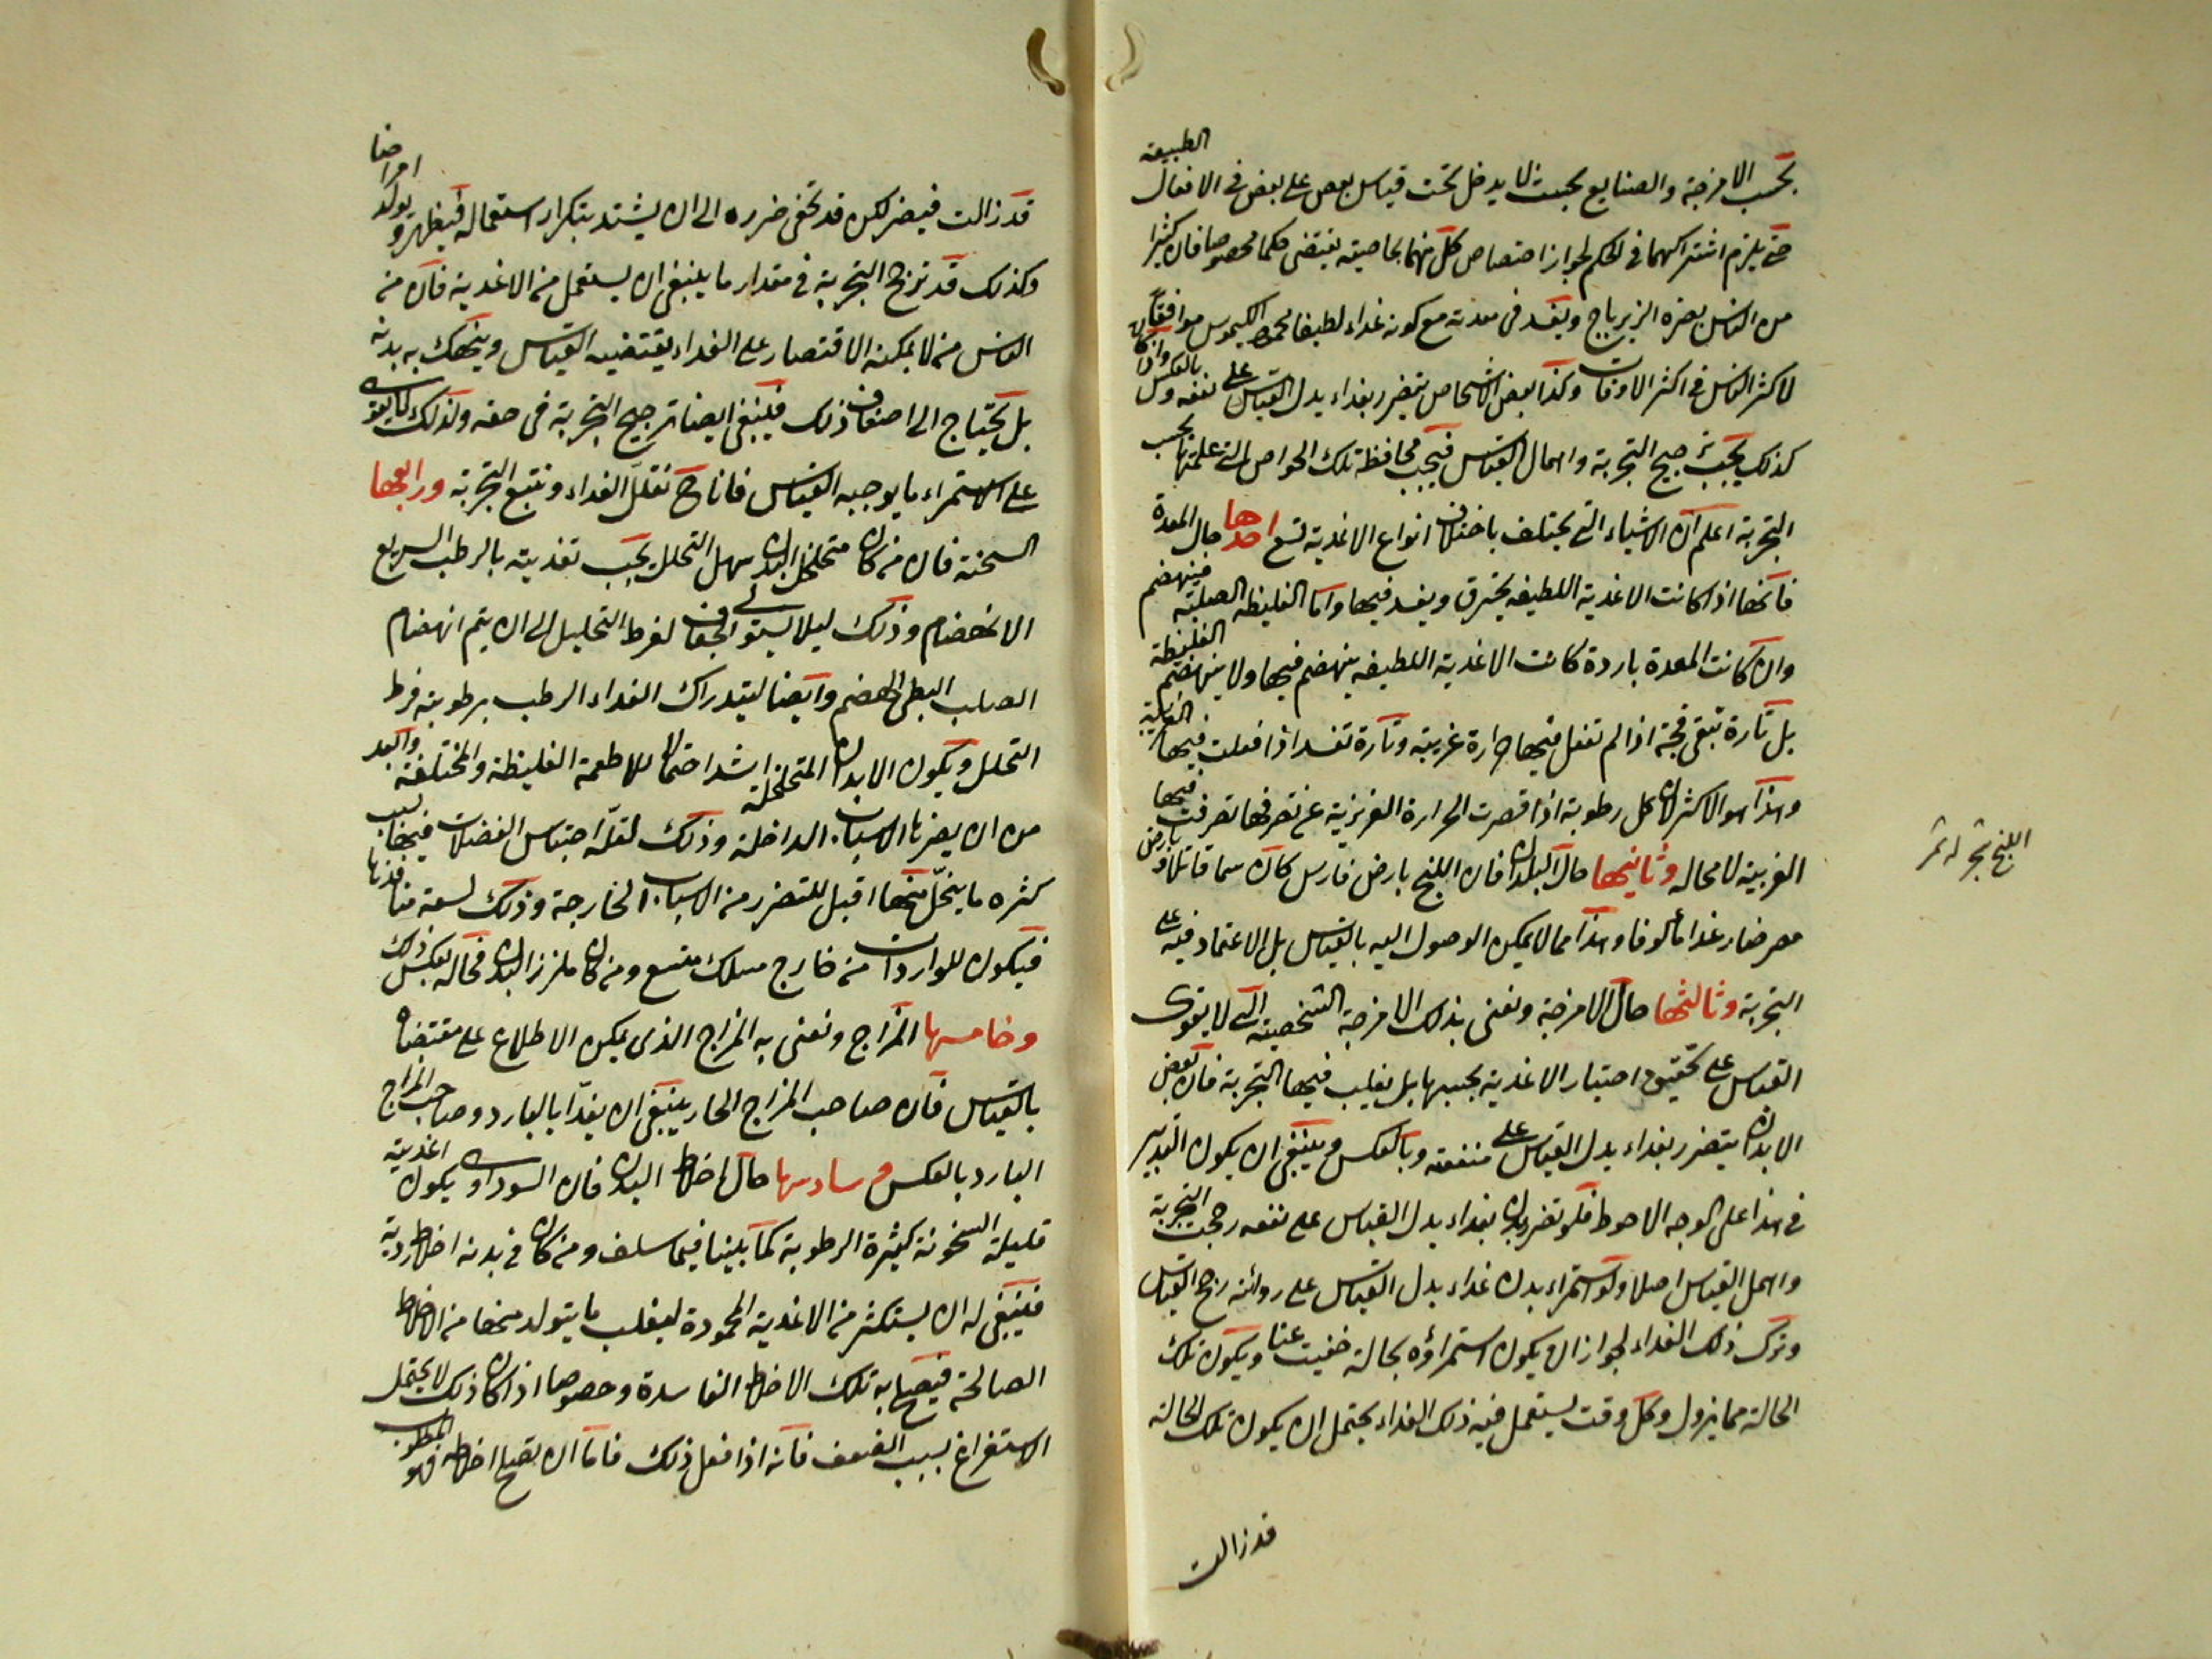 بحسب الامزجة والصنايع بحيث لا يدخل تحت قياس بعض على بعض فى الافعال الطبيعية
حتى يلزم اشتراكهما فى الحكم لجواز اختصاص كل منهما بخاصية يقتضى حكما مخصوصا فان كثيرا
من الناس يضره الزيرباج ويفسد فى معدته مع كونه غداء لطيفا محمود الكيموس موافقا
لاكثر الناس فى اكثر الاوقات وكذا بعض الاشخاص يتضرر بغداء يدل القياس على نفعه وبالعكس واذا كان
كذلك يجب ترجيح التجربة واهمال القياس فيجب محافظة تلك الخواص التى علمتها بحسب
التجربة اعلم ان الاشياء التى يختلف باختلاف انواع الاغدية تسع احدها حال المعدة
فانها اذا كانت الاغدية اللطيفه يحترق ويفسد فيها واما الغليظه الصلبة فينهضم
وان كانت المعدة باردة كانت الاغدية اللطيفه ينهضم فيها ولا ينهضم الغليظة
بل تارة تبقى فجة اذا لم تفعل فيها حرارة غريبة وتارة تفسد اذا فعلت فيها الغريبة
وهذا هو الاكثر لان كل رطوبة اذا قصرت الحرارة الغريزية عن تصرفها تصرفت فيها
الغريبة لا محاله وثانيها حال البلدان فان اللبخ بارض فارس كان سما قاتلا وبارض
مصر صار غدا مألوفا وهذا مما لا يمكن الوصول اليه بالقياس بل الاعتماد فيه على
التجربة وثالثها حال الامزجة ونعنى بذلك الامزجة الشخصية التى لا يقوى
القياس على تحقيق اختيار الاغدية بحسبها بل يغلب فيها التجربة فان بعض
الابدان يتضرر بغداء يدل القياس على منفعته وبالعكس وينبغى ان يكون التدبير
فى هذا على الوجه الاحوط فلو تضرر بدن بغداء يدل القياس على نفعه رجحت التجربة
واهمل القياس اصلا ولو استمراء بدن غداء يدل القياس على رداءته رجح القياس
وترك ذلك الغداء لجواز ان يكون استمراؤه بحالة خفيت عنا ويكون تلك
الحالة مما يزول وكل وقت يستعمل فيه ذلك الغداء يحتمل ان يكون تلك الحالة
قد زالت
اللبخ شجر له ثمر
قد زالت فيضر لكن قد يخفى ضرره الى ان يشتد بتكرار استعماله فيظهر ويولد امراضا
وكذلك قد ترجح التجربة فى مقدار ما ينبغى ان يستعمل من الاغدية فان من
الناس من لا يمكنه الاقتصار على الغداء يقتضيه القياس وينهك به بدنه
بل يحتاج الى اضعاف ذلك فينبغى ايضا ترجيح التجربة فى حقه وكذلك من لا يقوى
على الاستمراء ما يوجبه القياس فانا ح نقلل الغداء ونتبع التجربة ورابعها
السحنة فان من كان متخلخل البدن سهل التحلل يجب تغديته بالرطب السريع
الانهضام وذلك ليلا يستولى الجفاف لفرط التحليل الى ان يتم انهضام
الصلب البطى الهضم وايضا ليتدارك الغداء الرطب برطوبته فرط
التحلل ويكون الابدان المتخلخلة اشد احتمالا للاطعمة الغليظة والمختلفة وابعد
من ان يضرها الاسباب الداخلة وذلك لقلة احتباس الفضلات فيها بسبب
كثره ما ينحل منها اقبل للتضرر من الاسباب الخارجة وذلك لسعة منافذها
فيكون للواردات من خارج مسلك متسع ومن كان ملزز البدن فحاله بعكس ذلك
وخامسها المزاج ونعنى به المزاج الذى يمكن الاطلاع على مقتضاه
بالقياس فان صاحب المزاج الحار ينبغى ان يغدا بالبارد وصاحب المزاج
البارد بالعكس وسادسها حال اخلاط البدن فان السوداوى يكون اغديته
قليلة السخونة كثيرة الرطوبة كما بينا فيما سلف ومن كان فى بدنه اخلاط ردية
فينبغى له ان يستكثر من الاغدية المحمودة ليغلب ما يتولد منها من الاخلاط
الصالحة فيصلح به تلك الاخلاط الفاسدة وخصوصا اذا كان ذلك لا يحتمل
الاستفراغ بسبب الضعف فانه اذا فعل ذلك فاما ان يصلح اخلاطه فهو المطلوب